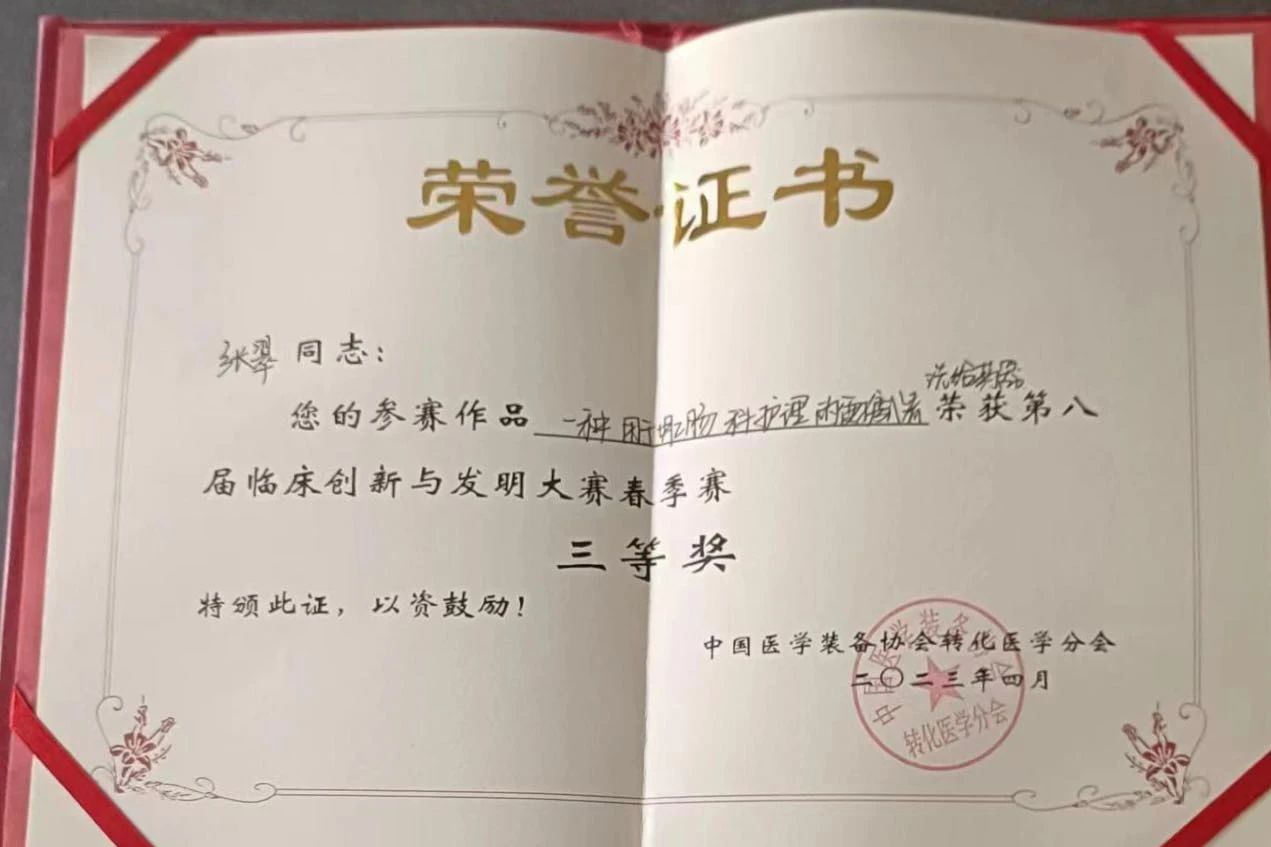 荣誉证书
张翠 同志：
您的参赛作品 一种用于肛肠科护理的 荣获第八
届临床创新与发明大赛春季赛
三等奖
特颁此证，以资鼓励！
中国医学装备协会转化医学分会
二〇二三年四月
中国医学装备协会
转化医学分会